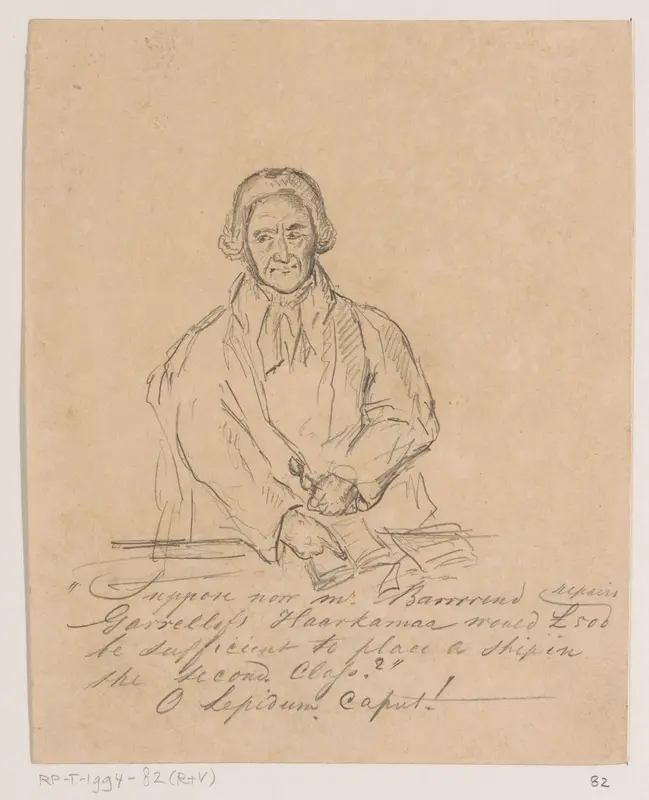 "Suppose now mr. Barrrrend repairs
Garrellofs Haarkamaa would £500
be sufficient to place a ship in
the second Class?"
O Lepidum Caput!
RP-T-1994-82 (R+V)
82